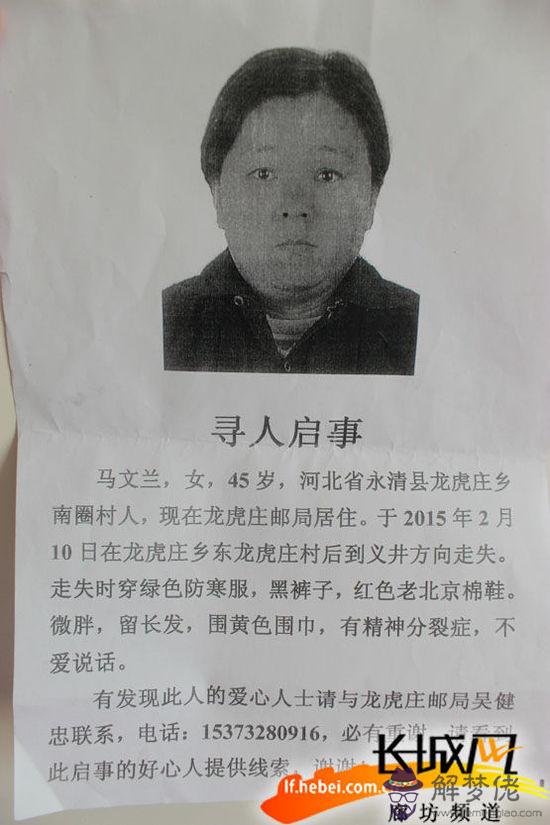 寻人启事
马文兰，女，45岁，河北省永清县龙虎庄乡
南圈村人，现在龙虎庄邮局居住。于2015年2月
10日在龙虎庄乡东龙虎庄村后到义井方向走失。
走失时穿绿色防寒服，黑裤子，红色老北京棉鞋。
微胖，留长发，围黄色围巾，有精神分裂症，不
爱说话。
有发现此人的爱心人士请与龙虎庄邮局吴健
忠联系，电话：15373280916，必有重谢。请看到
此启事的好心人提供线索，谢谢
长城网
lf.hebei.com
解梦佬
廊坊频道